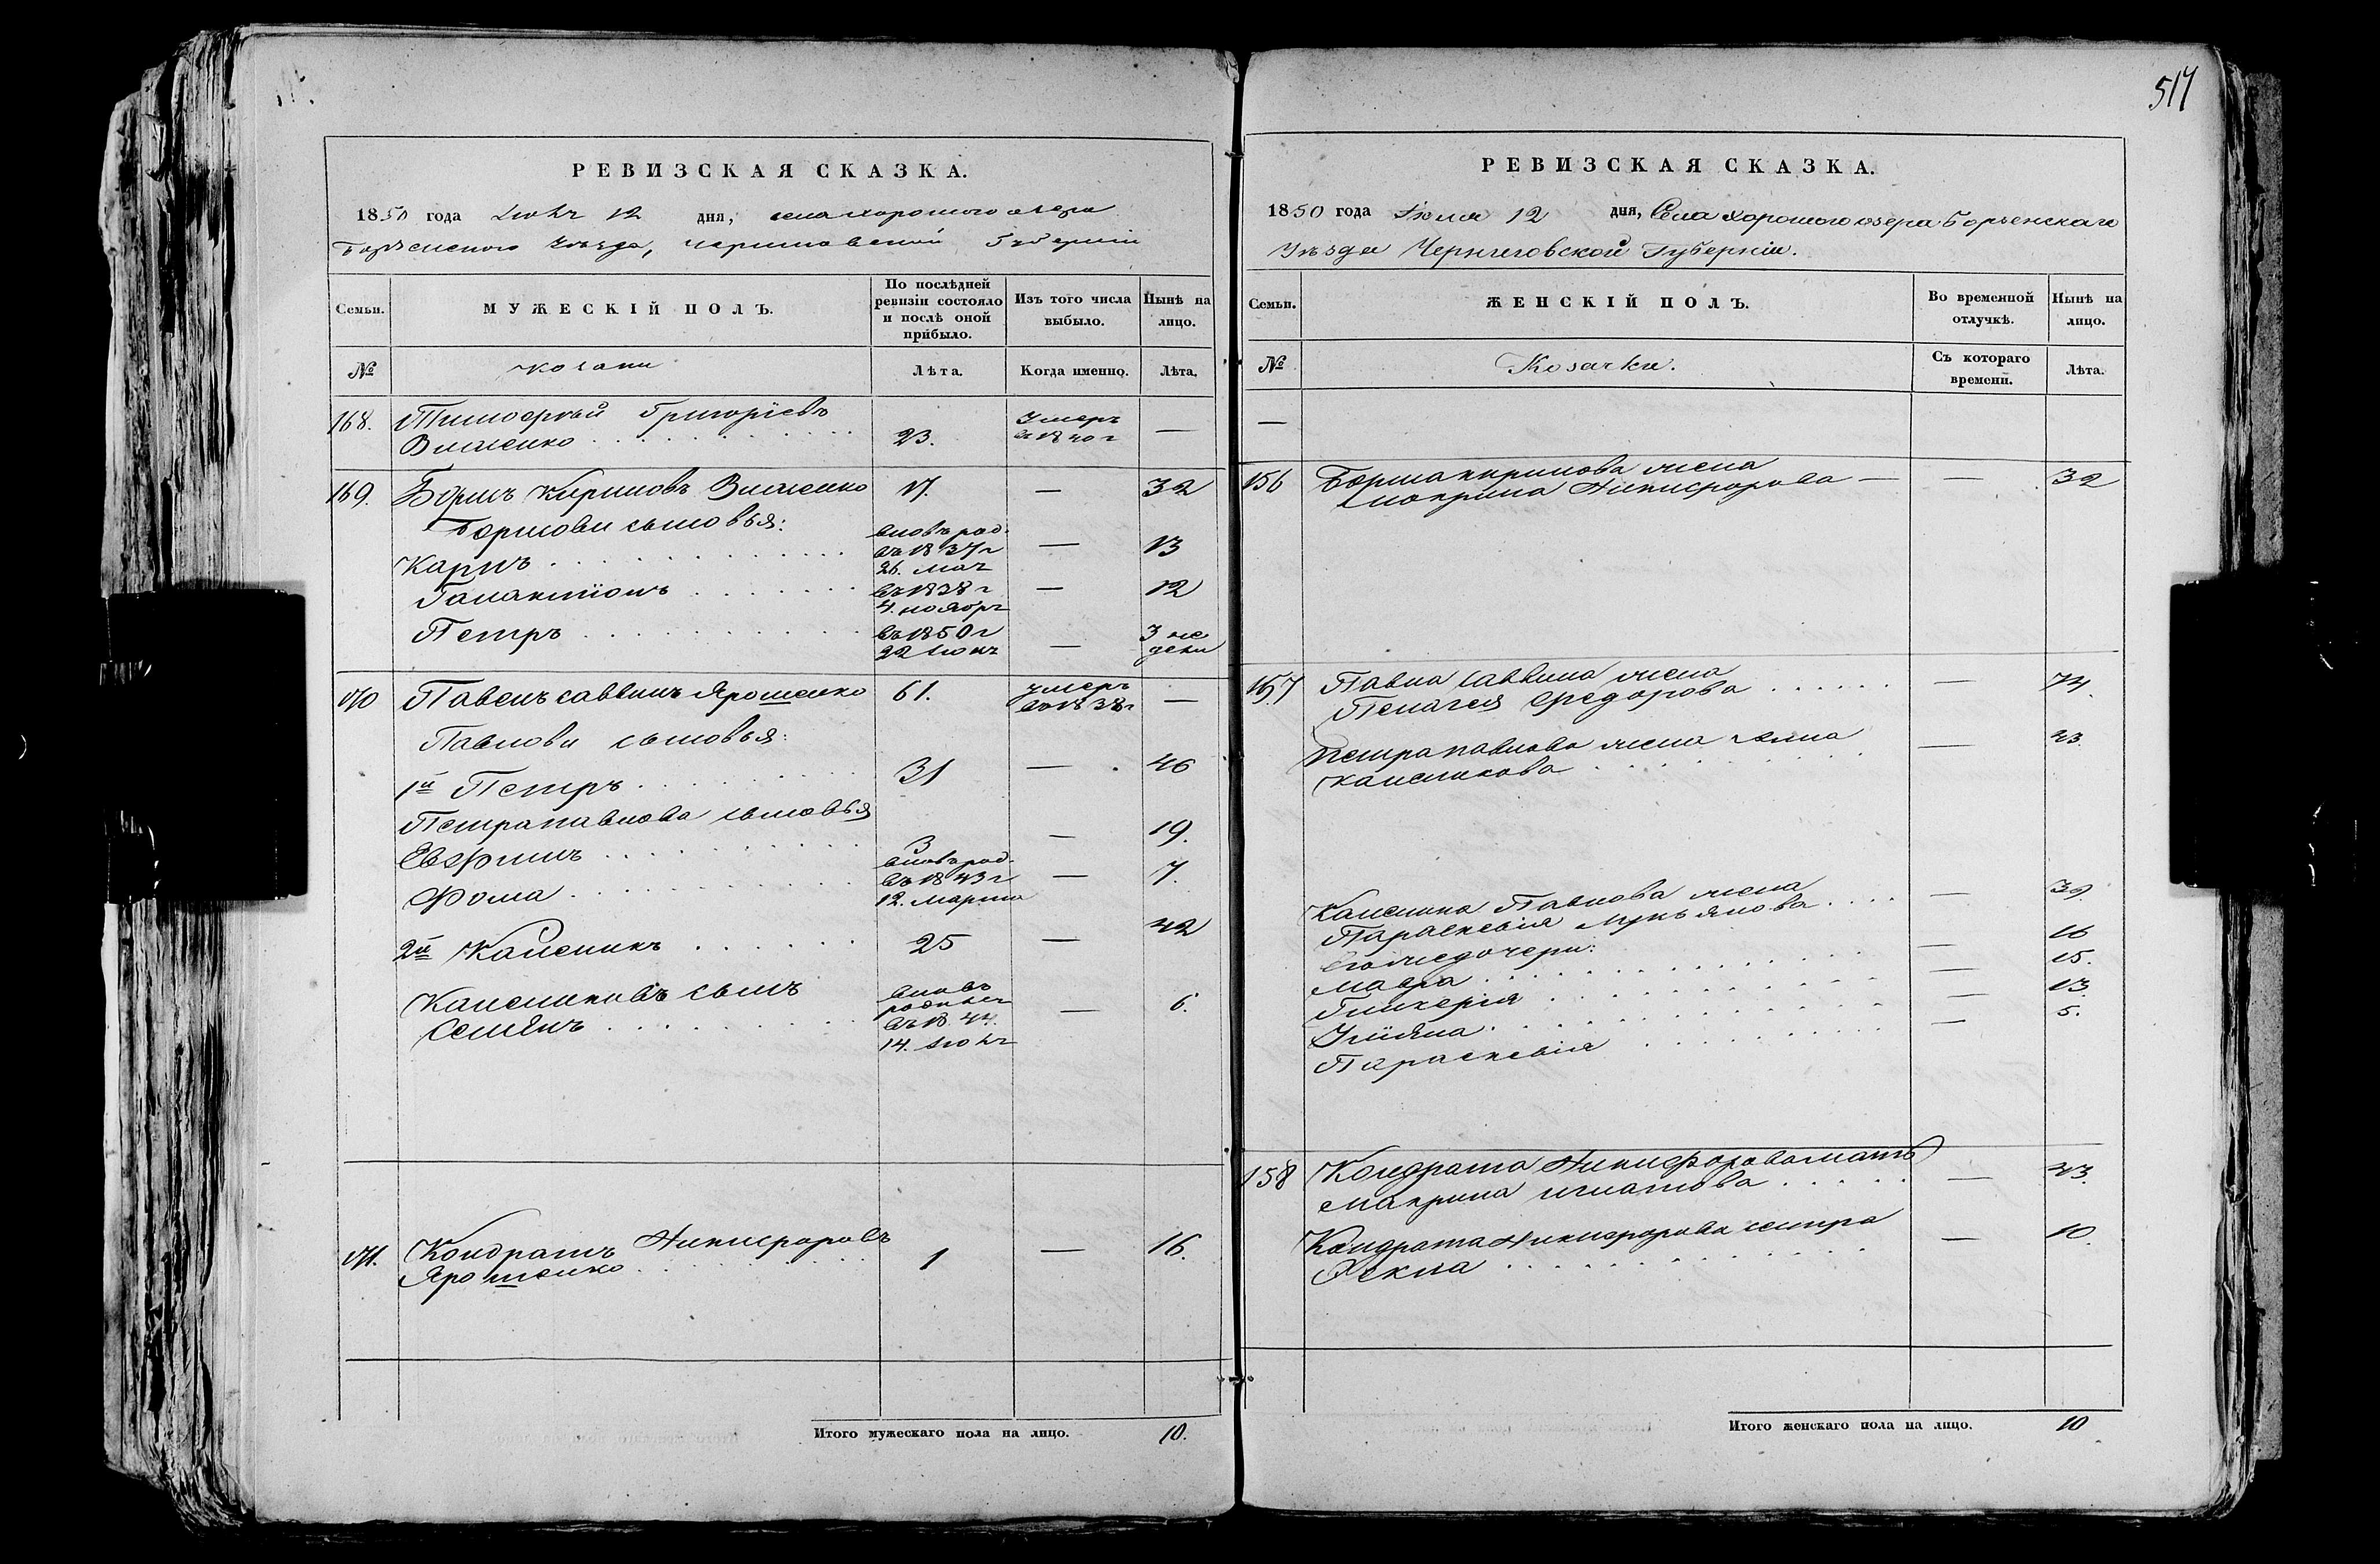 РЕВИЗСКАЯ СКАЗКА.
1850 года Июля 12 дня, села хорошого озера
Борзенского Уѣзда, Черниговской Губерніи
Семьи.
МУЖЕСКІЙ ПОЛЪ.
По послѣдней
ревизіи состояло
и послѣ оной
прибыло.
Изъ того числа
выбыло.
Нынѣ на
лицо.
№
козаки
Лѣта.
Когда именно.
Лѣта.
168. Тимофѣй Григоріевъ
Власенко 23. Умеръ в 1840 г —
169. Борисъ Кириловъ Власенко 17. — 32
Борисовы сыновья:
Карпъ вновь род. въ 1837 г 26. мая — 13
Галактіонъ въ 1838 г 4. ноября — 12
Петръ въ 1850 г 22 Июня — 3 недели
170 Павелъ Саввинъ Ярошенко 61. умеръ въ 1838 г —
Павловы сыновья:
1й Петръ 31 — 46
Петра павлова сыновья
Евфимъ 3 — 19.
Фома вновь род. въ 1843 г 12. Марта — 7.
2й Каленикъ 25 — 42
Калениковъ сынъ
Семенъ вновь рожден въ 18 44. 14. Июня — 6.
171. Кондратъ Никифоровъ
Ярошенко 1 — 16.
Итого мужескаго пола на лицо. 10.
517
РЕВИЗСКАЯ СКАЗКА.
1850 года Июля 12 дня, Села хорошого озера Борзенскаго
Уѣзда Черниговской Губерніи.
Семьи.
ЖЕНСКІЙ ПОЛЪ.
Во временной
отлучкѣ.
Нынѣ на
лицо.
№
Козачки.
Съ котораго
времени.
Лѣта.
—
156 Бориса кирилова жена
Мокрина Никифорова — — 32
157 Павла Саввина жена
Пелагея Федорова — 74.
Петра павлова жена Анна
каленикова — 43.
Каленика Павлова жена
Параскевія Лукъянова — 39.
его же дочери:
Мавра — 16
Гликерія — 15.
Уліяна — 13
Параскевія — 5.
158 Кондрата Никифорова мать
Макрина игнатова — 43.
Кондрата Никифорова сестра
Фекла — 10.
Итого женскаго пола на лицо. 10